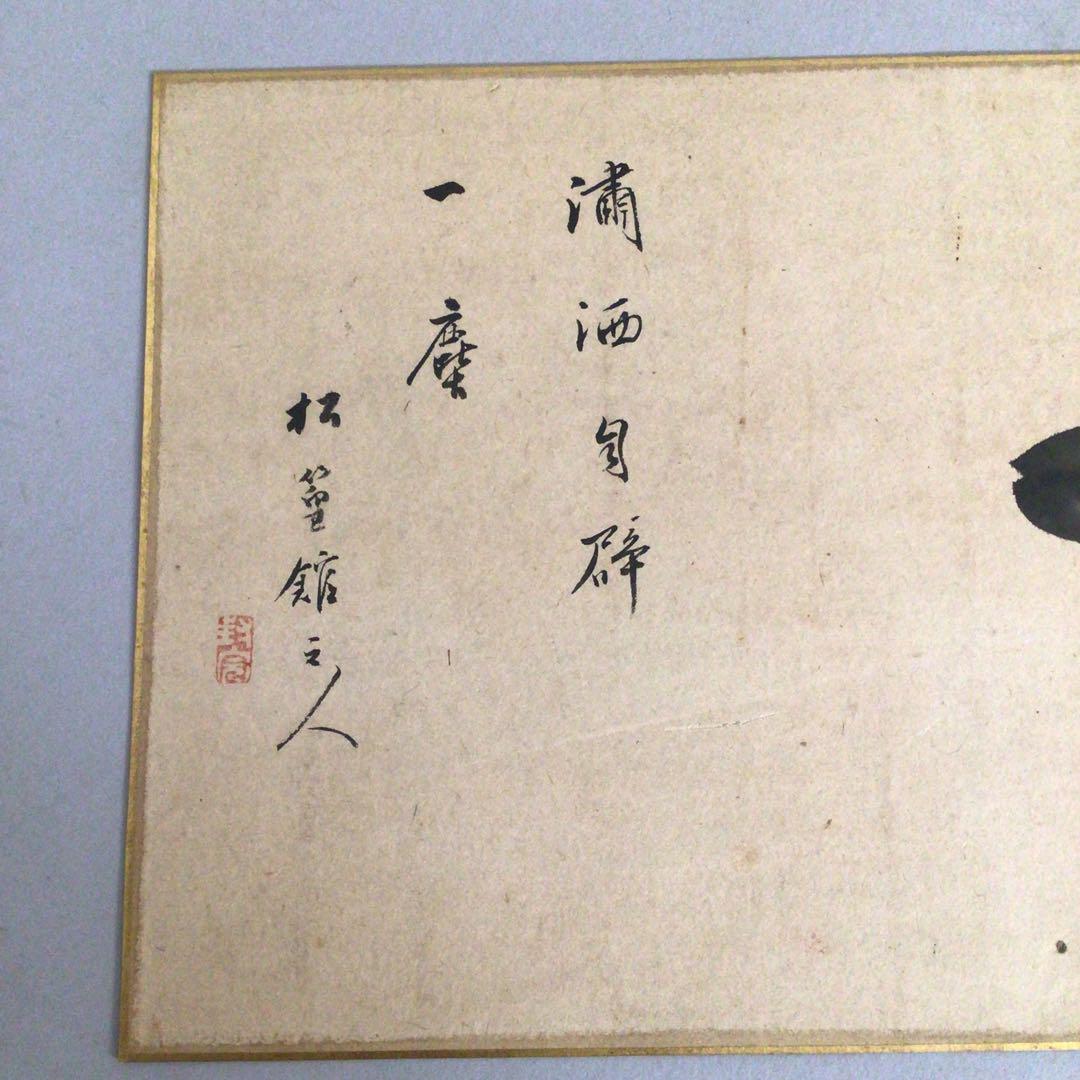 瀟洒自辟
一塵
松篁館主人